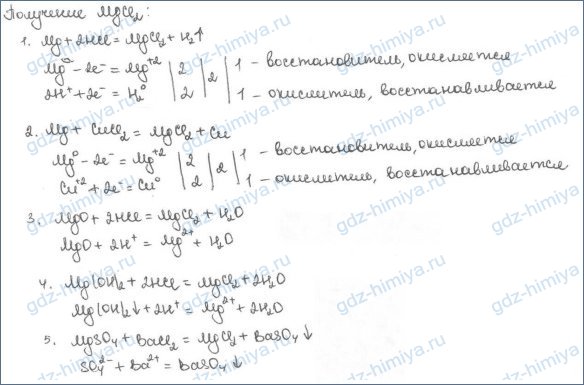 Получение MgCl₂:
1. Mg + 2HCl = MgCl₂ + H₂↑
Mg⁰ - 2e⁻ = Mg⁺² | 2 | 2 | 1 - восстановитель, окисляется
2H⁺ + 2e⁻ = H₂⁰ | 2 | | 1 - окислитель, восстанавливается
2. Mg + CuCl₂ = MgCl₂ + Cu
Mg⁰ - 2e⁻ = Mg⁺² | 2 | 2 | 1 - восстановитель, окисляется
Cu⁺² + 2e⁻ = Cu⁰ | 2 | | 1 - окислитель, восстанавливается
3. MgO + 2HCl = MgCl₂ + H₂O
MgO + 2H⁺ = Mg²⁺ + H₂O
4. Mg(OH)₂ + 2HCl = MgCl₂ + 2H₂O
Mg(OH)₂↓ + 2H⁺ = Mg²⁺ + 2H₂O
5. MgSO₄ + BaCl₂ = MgCl₂ + BaSO₄↓
SO₄²⁻ + Ba²⁺ = BaSO₄↓
gdz-himiya.ru